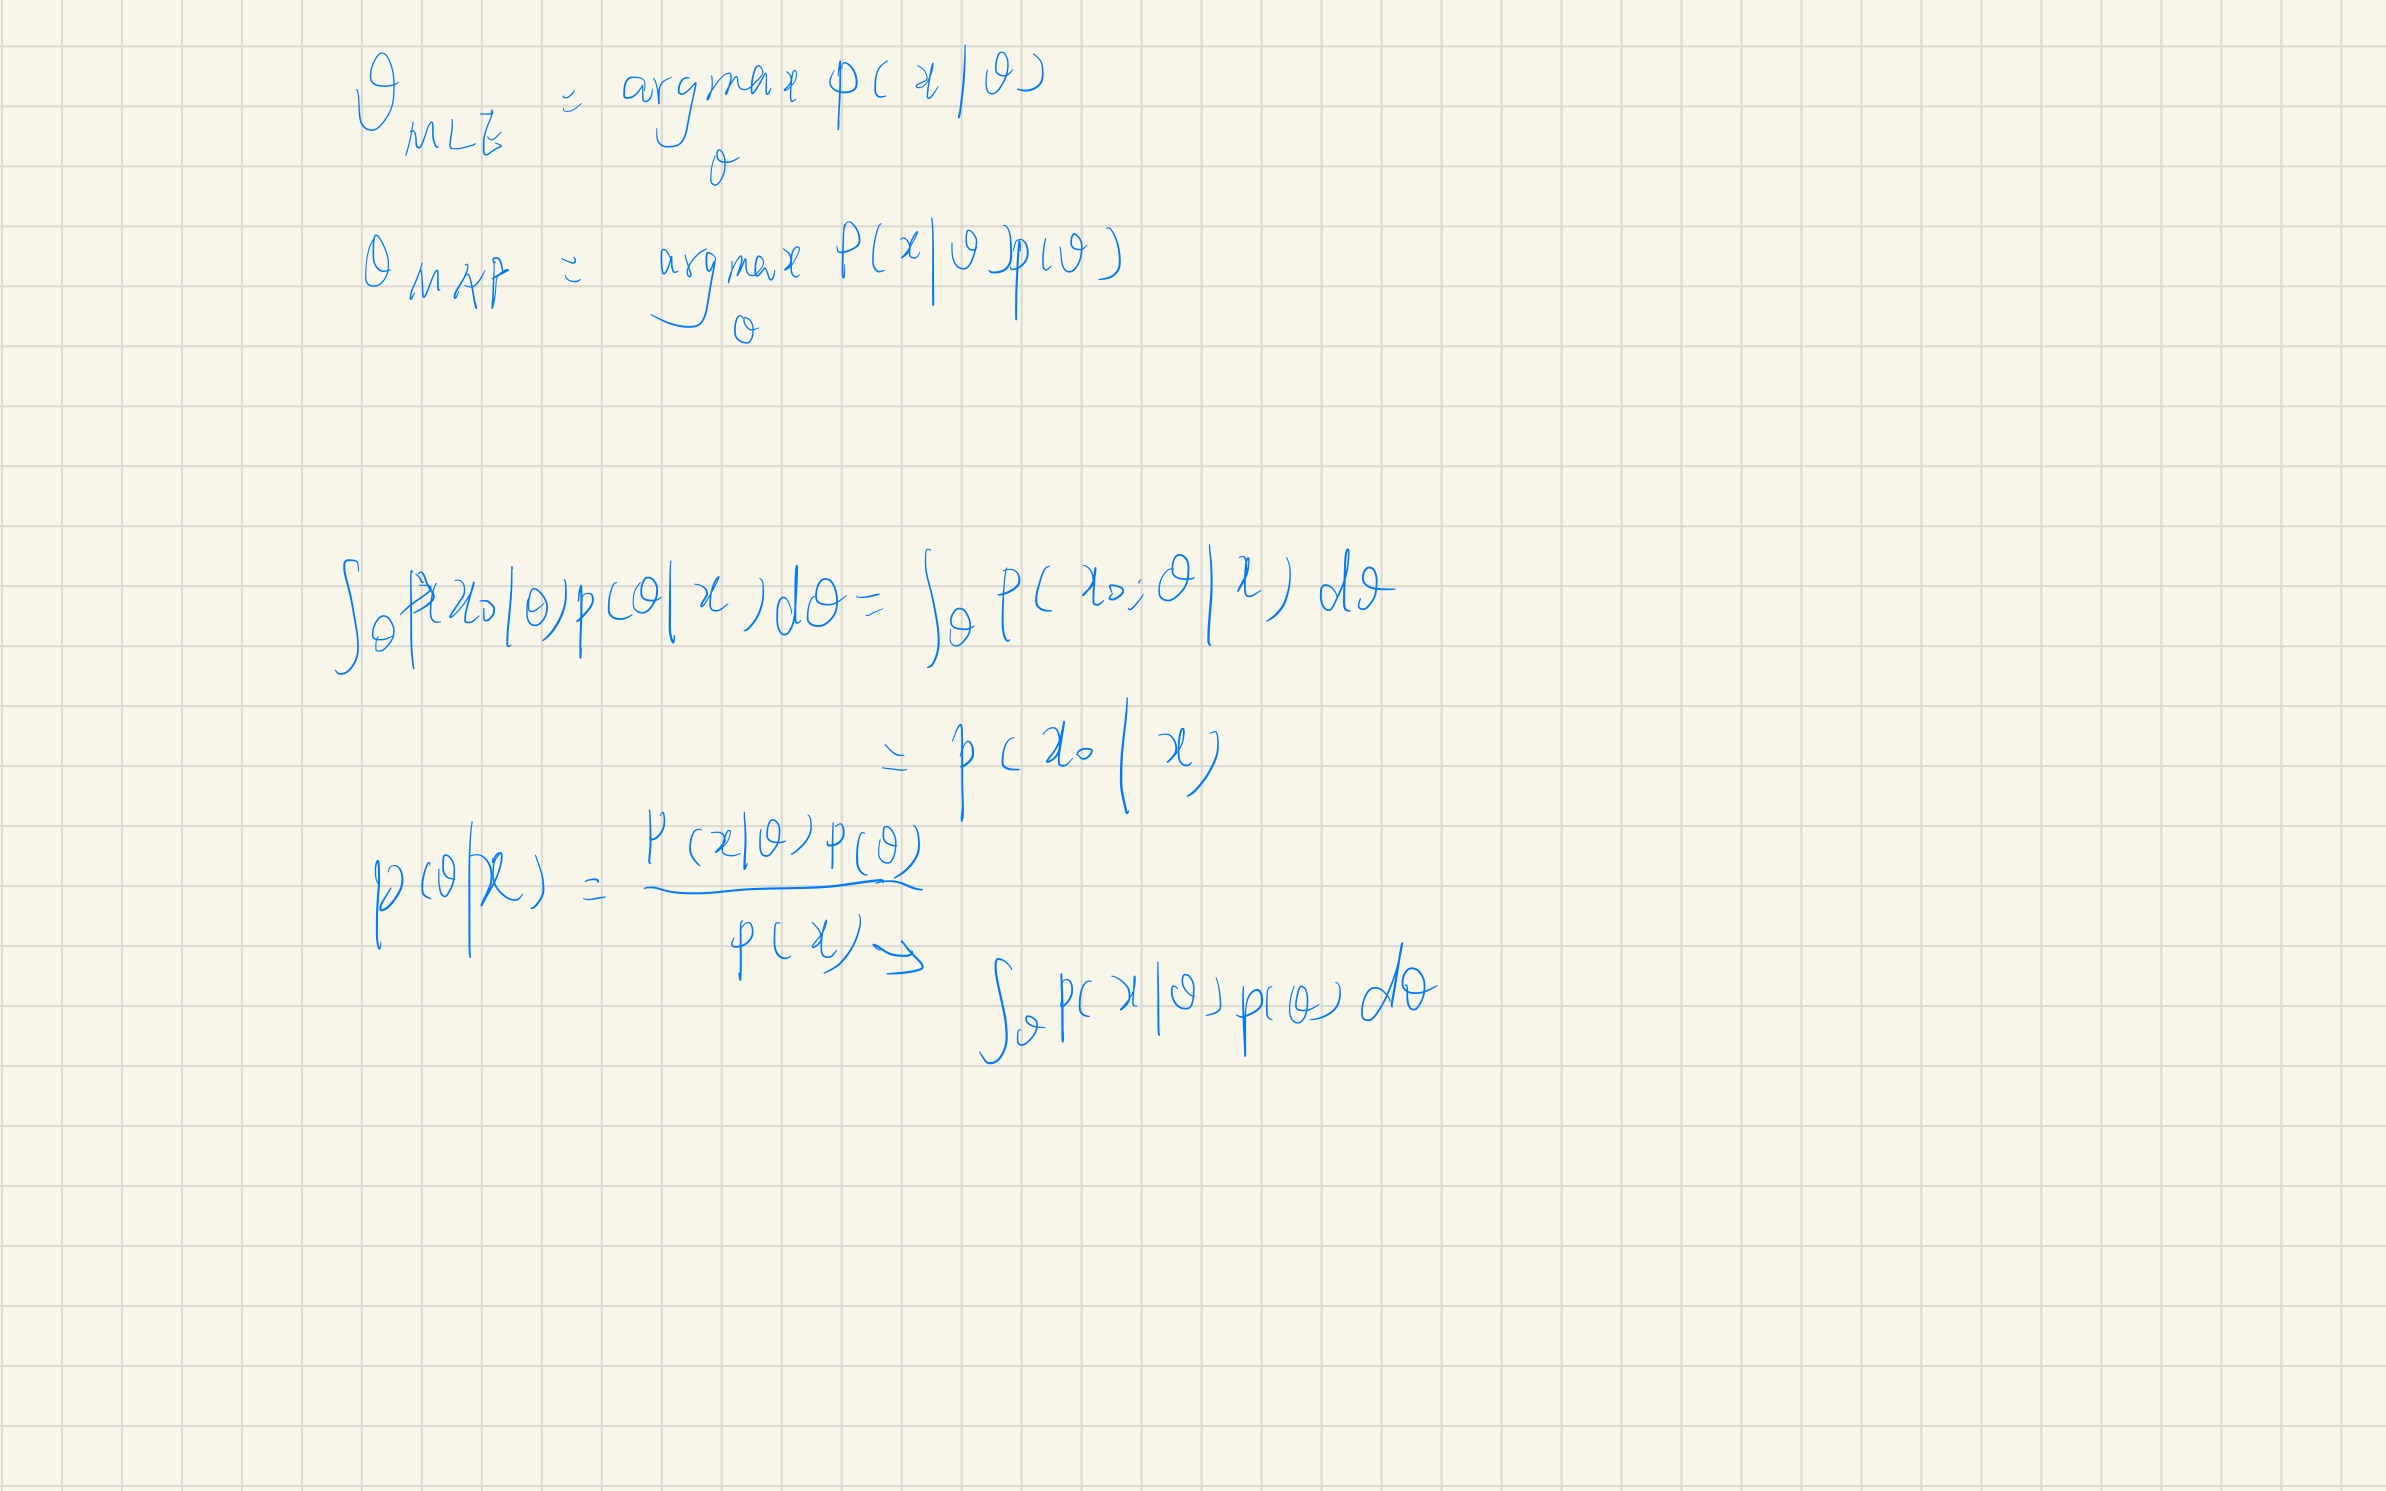 θ_MLE = argmax_θ p(x|θ)
θ_MAP = argmax_θ p(x|θ)p(θ)
∫_θ p(x₀|θ)p(θ|x)dθ = ∫_θ p(x₀,θ|x)dθ
= p(x₀|x)
p(θ|x) = p(x|θ)p(θ) / p(x) ↘
∫_θ p(x|θ)p(θ)dθ